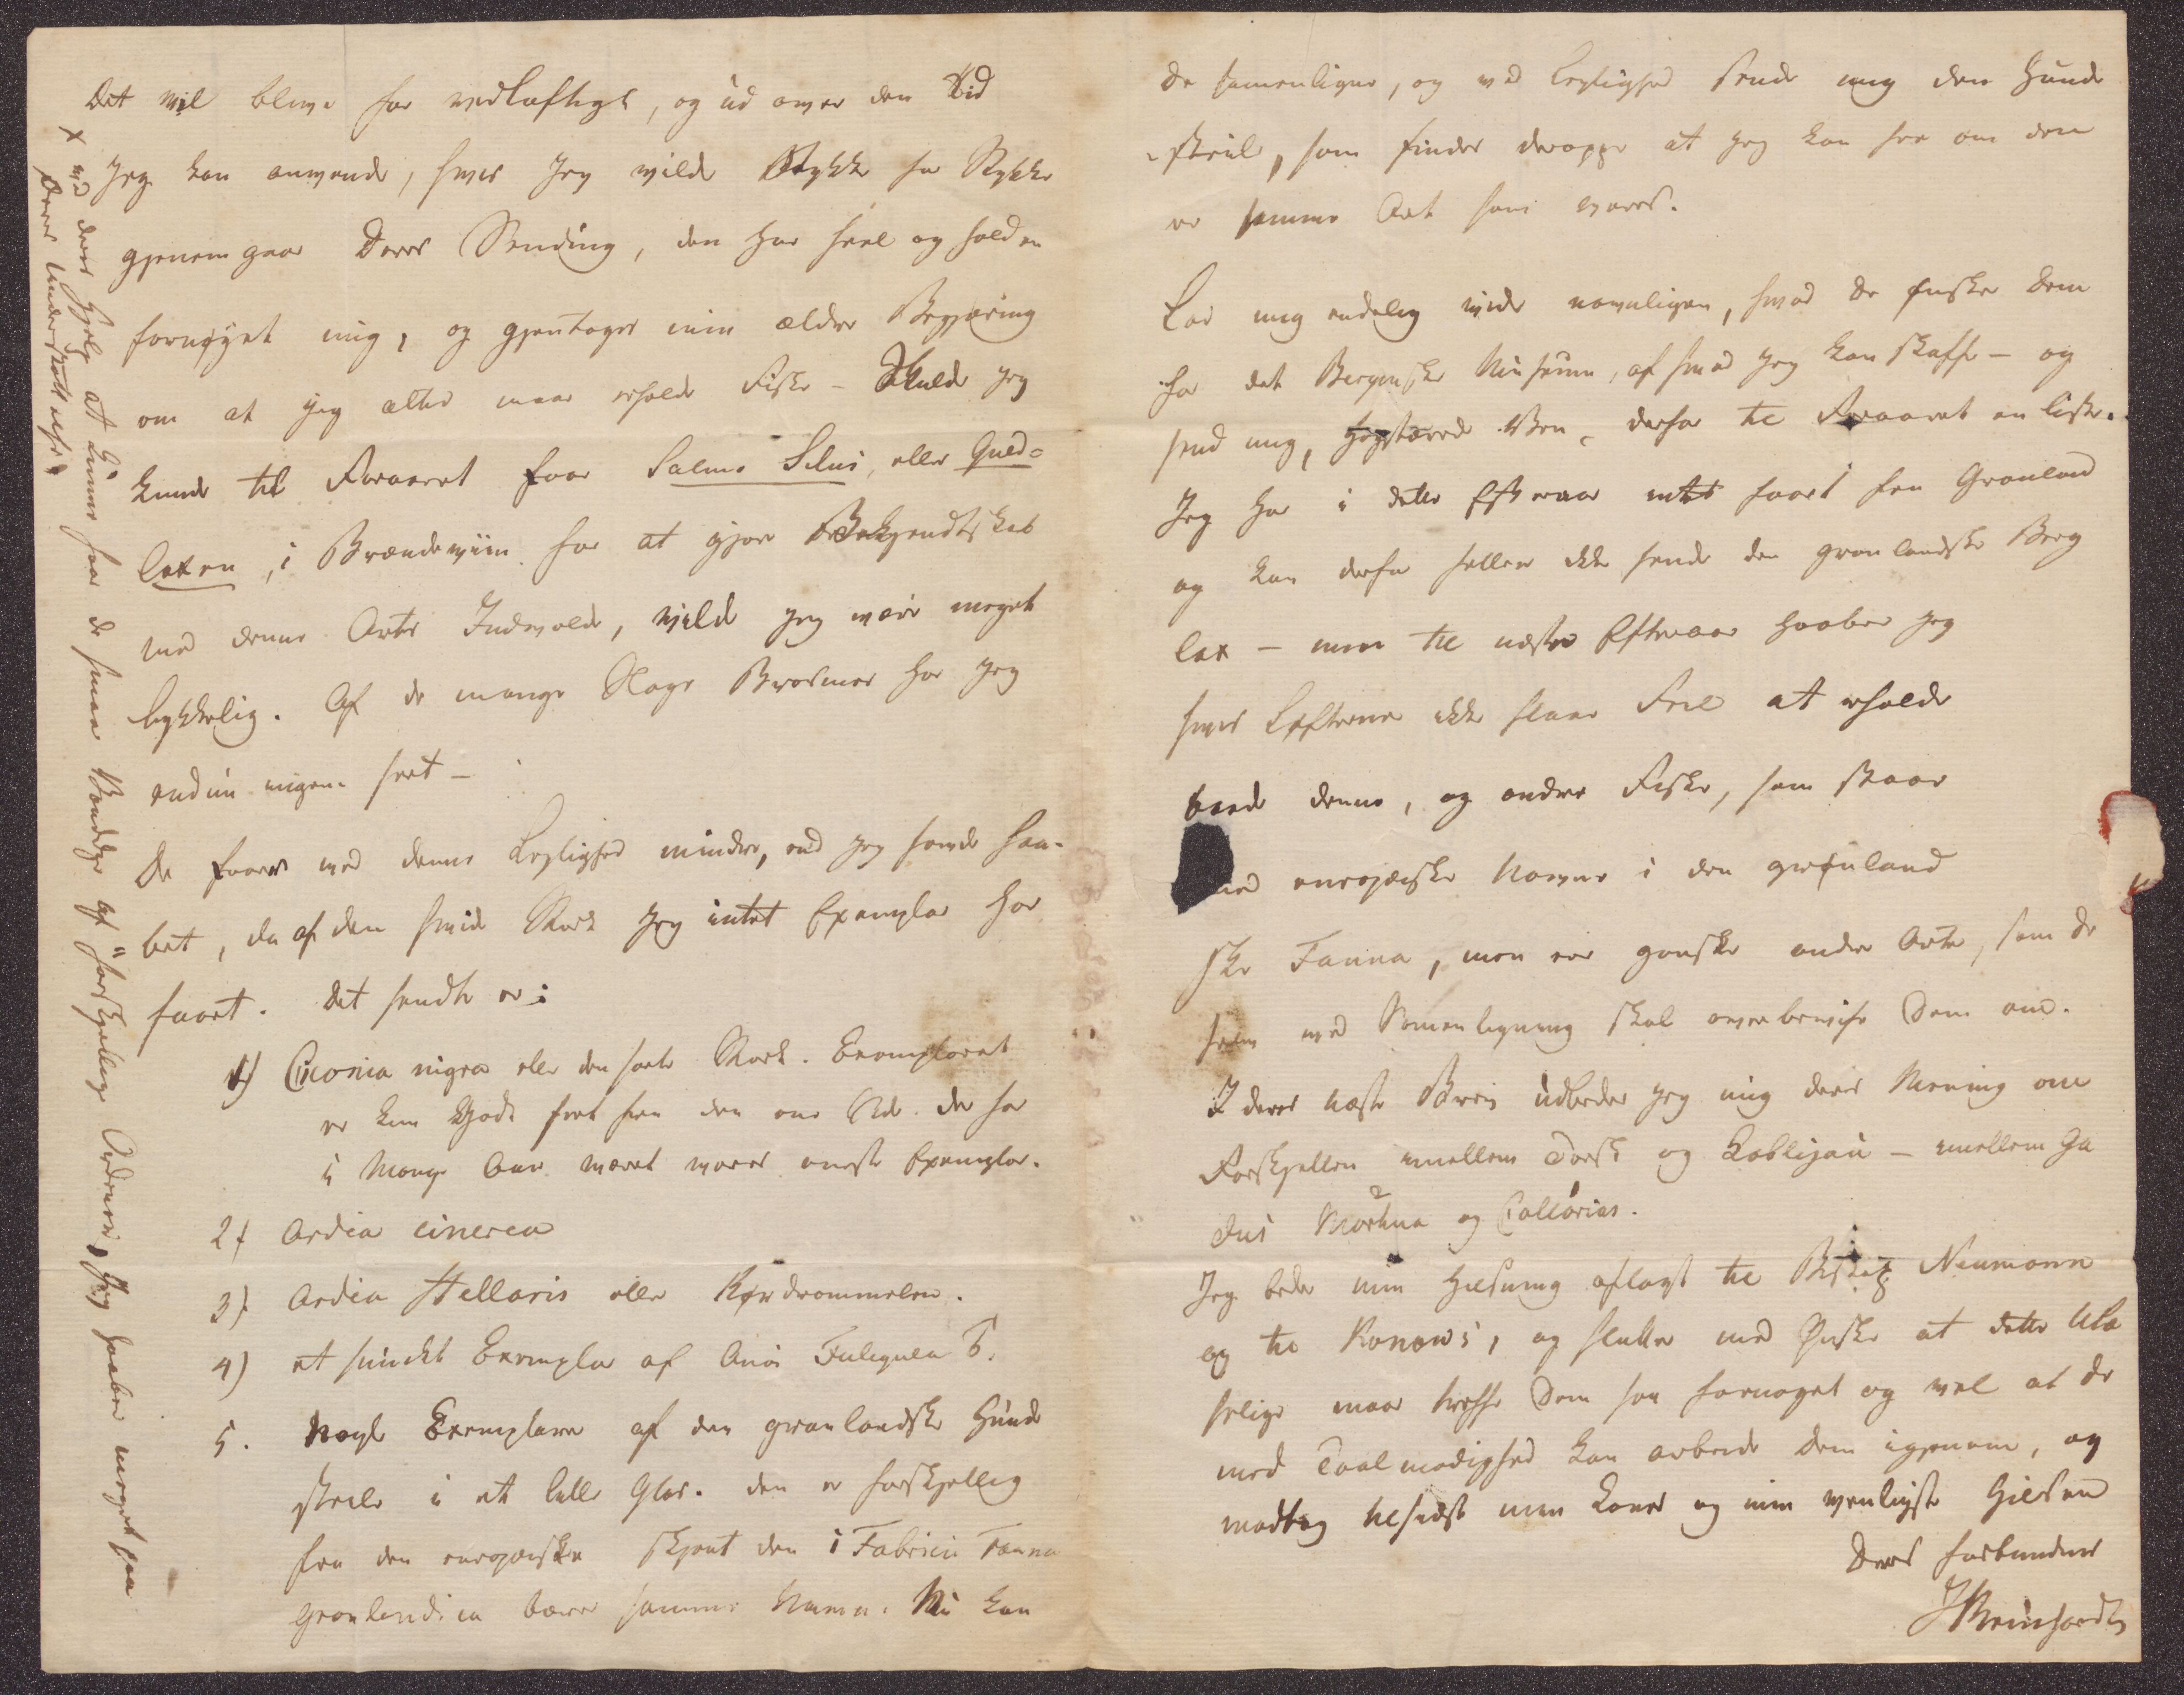 Det vil blive for vedløftigt, og ud over den Tid
Jeg kan anvende, hvis Jeg vilde Stykke for Stykke
gjenemgaae Deres Sending, den har heel og holden
fornøyet mig, og gjentager min ældre Begjæring
om at jeg altid maae erholde Fiske – Skulde jeg
kunde til Foraaret faae Salmo Silus, eller Guld-
laxen, i Brændeviin for at gjøre Bekjendtskab
med denne Arts Indvolde, vilde jeg være meget
lykkelig. Af de mange Slags Brosmer har jeg
endnu ingen seet –
De faaer med denne Leylighed mindre, end jeg havde haa-
bet, da af den hvide Stork jeg intet Exemplar har
faaet. Det sendte er:
1) Ciconia nigra eller den sorte Stork. Exemplaret
er kun  seet fra den ene Side. det har
i Mange Aar været vores eneste Exemplar.
2) Ardea cinerea
3) Ardea Stellaris eller Rørdrommelen.
4) et smukt Exemplar af Anas Fuligula
5. Nogle Exemplarer af den grønlandske Hunde
steile i et lille Glas. den er forskjellig
fra den europæiske skjønt den i Fabricii Fauna
grønlandica bærer samme Navn. Nu kan
x ved deres Hjelp at kunne faae de smaae  af forskjellige  Jeg haaber meget paa
Deres Understøttelse
De sammenligne, og ved Leylighed sende mig den Hunde
steile, som findes deroppe at jeg kan see om den
er samme Art som vores.
Lad mig endelig vide navnligen, hvad De ønsker Dem
for det Bergenske Museum, af hvad jeg kan skaffe – og
send mig, høystærede Ven, derfor til Foraaret en Liste.
Jeg har i dette Efteraar intet faaet fra Grønland
og kan derfor heller ikke sende den grønlandske Berg
lax – men til næste Efteraar haaber jeg
hvis Løfterne ikke slaae Feil at erholde
baade denne, og andre Fiske, som staaer
med europæiske Navne i den grønland
ske Fauna, men ere ganske andre Arter, som De
selv ved Sammenligning skal overbevise Dem om.
I deres næste Brev udbeder jeg mig deres Mening om
Forskjellen imellem Torsk og Kabliau – imellem Ga
dus Morhua og Callarias.
Jeg beder min Hilsning aflagt til Biskop Neumann
og til Konows, og slutter med Ønske at dette
 maae træffe Dem saa fornøyet og vel at De
med Taalmodighed kan arbeide Dem igjennem, og
modtag tilsidst min Kones og min venligste Hilsen
Deres forbundne
JReinhardt